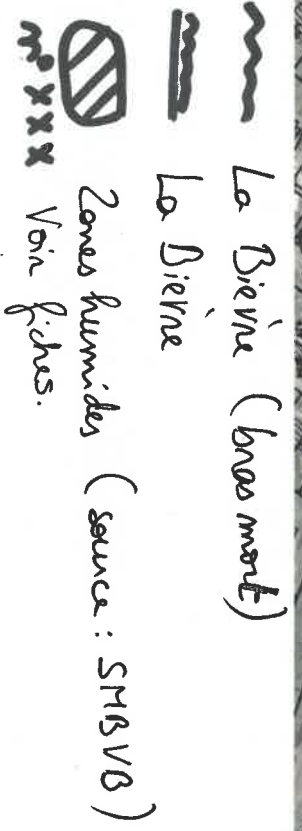 La Bièvre (bras mort)
La Bièvre
Zones humides (source : SMBVB)
n° xxx Voir fiches.